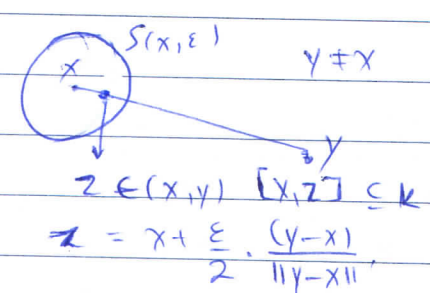 S(x, ε)
x
y ≠ x
y
z ∈ (x,y) [x,z] ⊆ K
z = x + ε/2 · (y-x)/||y-x||